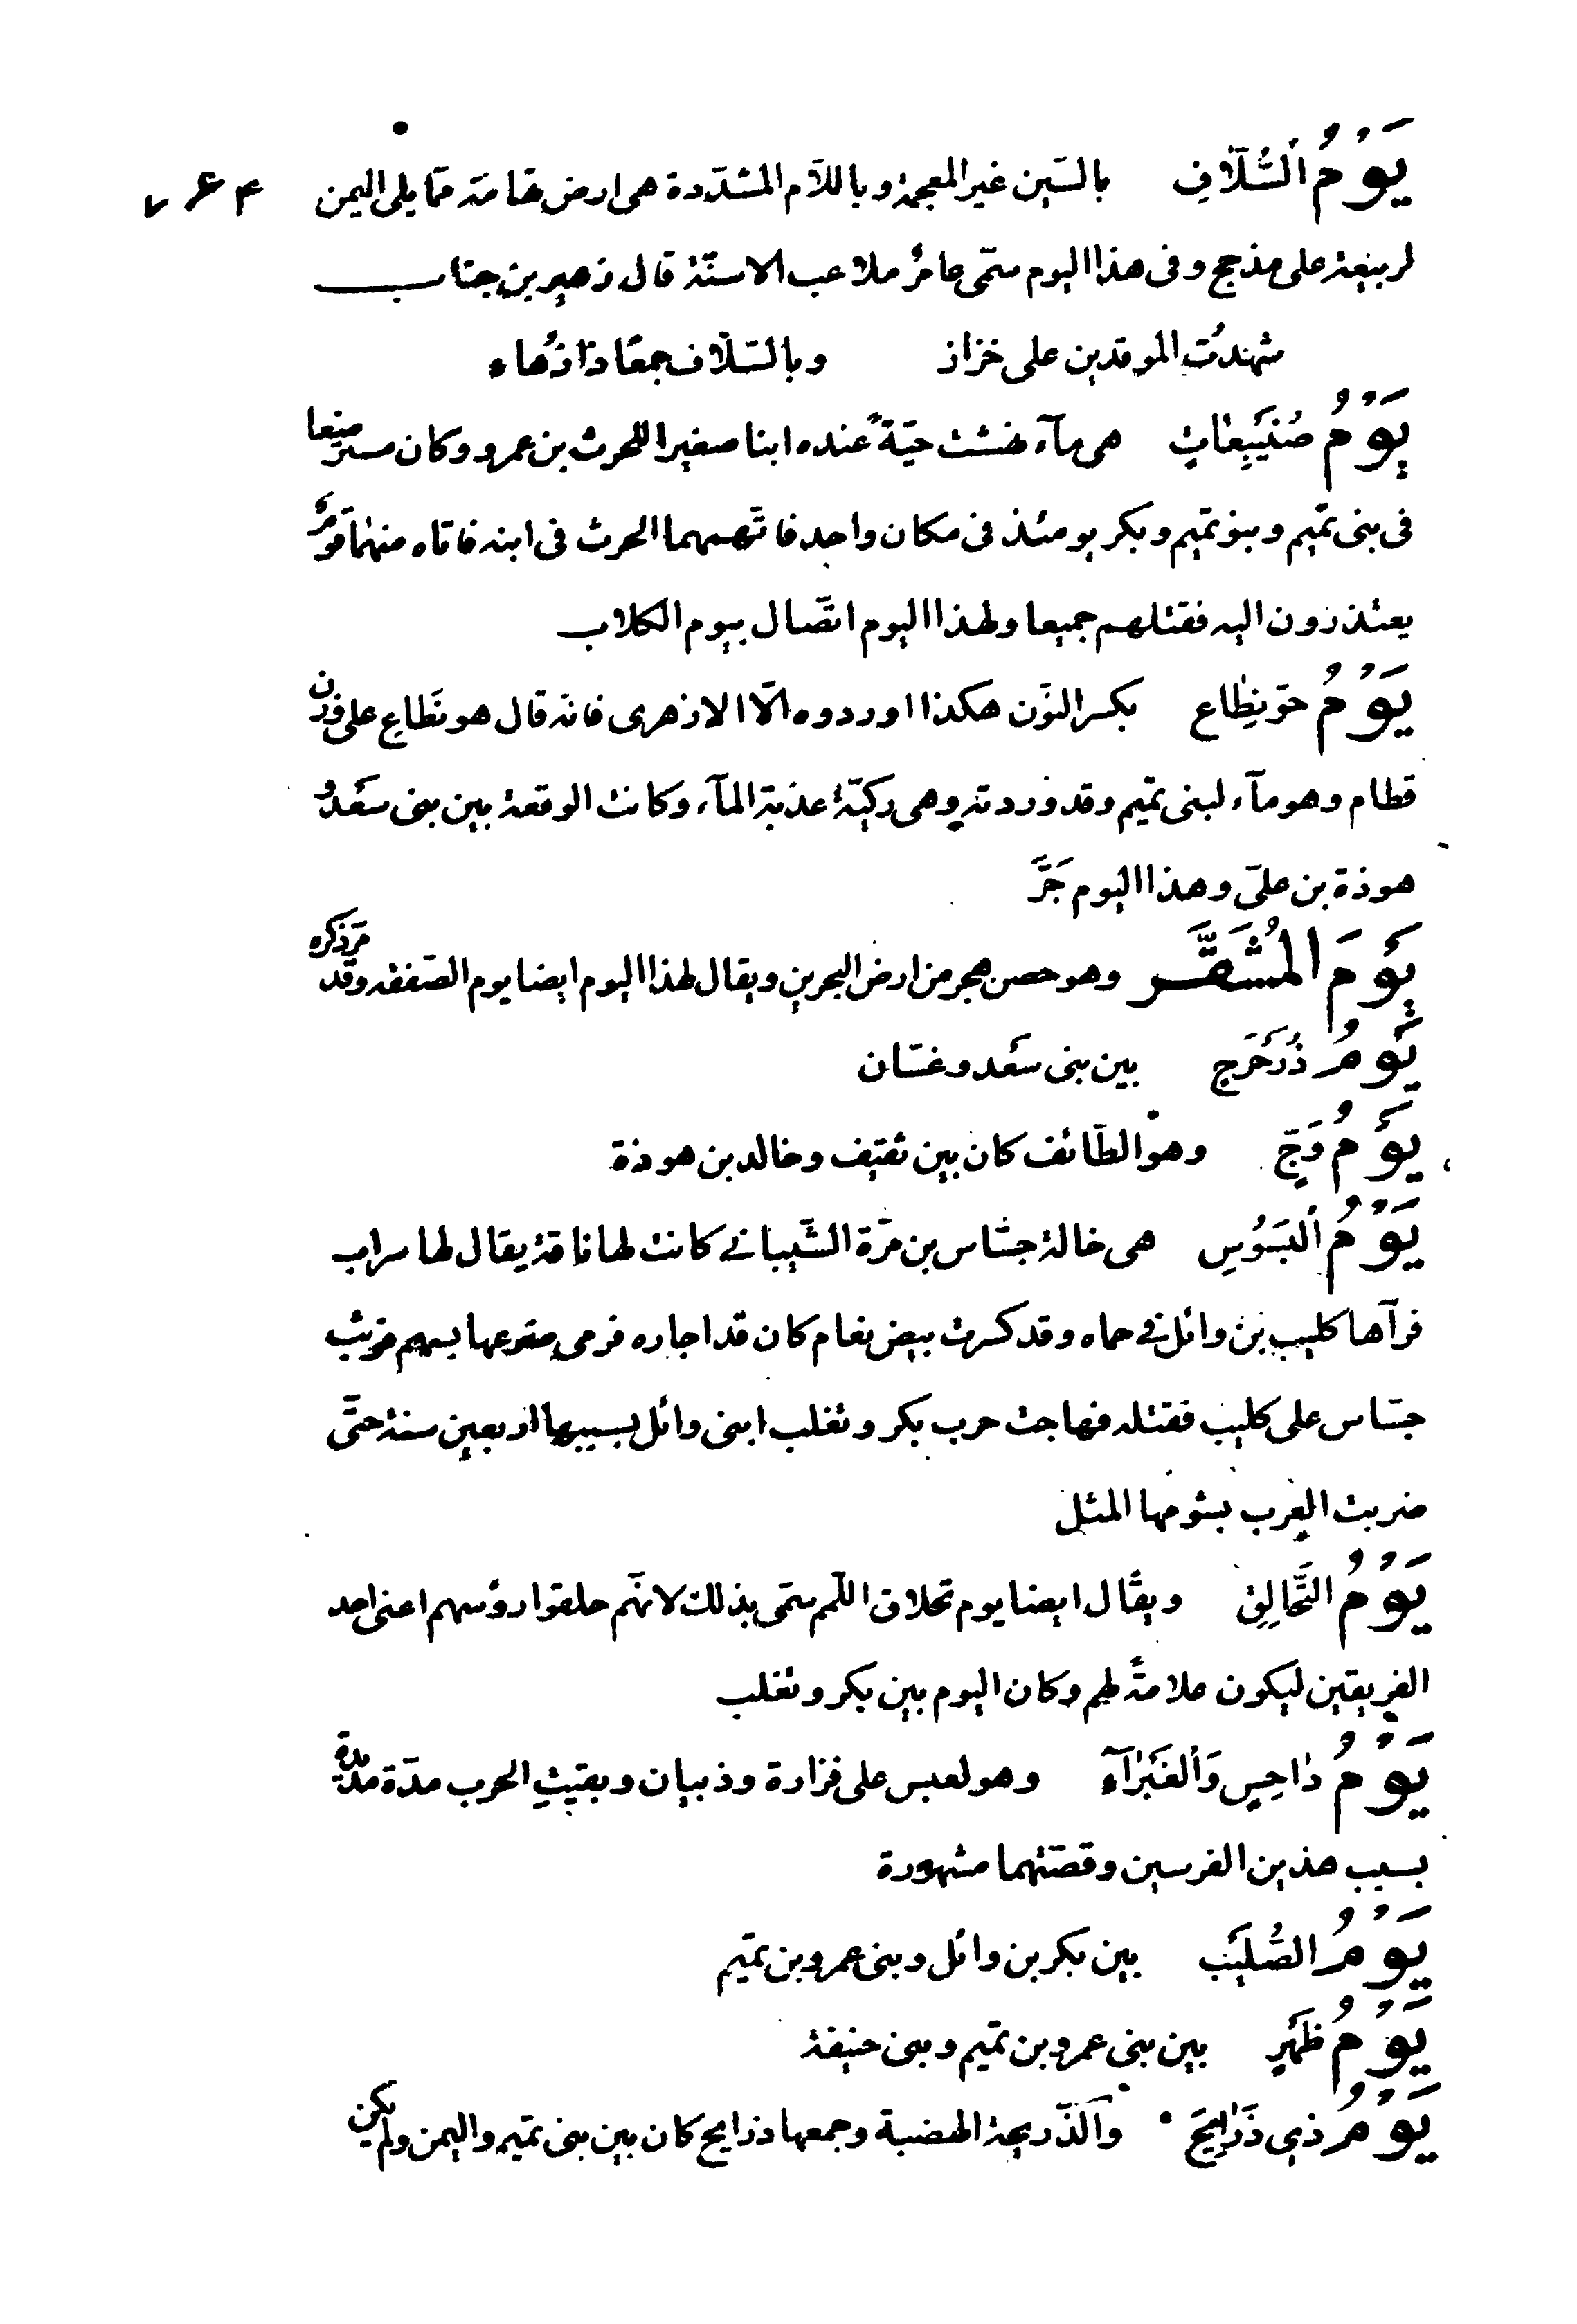 يَوْمُ السُّلَّافِ بالسّين غير المعجمة وباللّام المشدّدة هى ارض تهامة ممّا يلى اليمن ۷۶۴
لربيعة على مذحج وفى هذا اليوم سمّى عامرٌ ملاعب الاسنّة قال زهير بن جناب
شهدتُ الموقدين على خزاز وبالسّلّاف جمعًا ذا زُهاء
يَوْمُ صُنَيْبِعَاتٍ هى مآء نهشت حيّةٌ عنده ابنا صغيرا للحرث بن عمرو وكان مسترضعا
فى بنى تميم وبنو تميم وبكر يومئذ فى مكان واحد فاتّهمهما الحرث فى ابنه فاتاه منهما قومٌ
يعتذرون اليه فقتلهم جميعا ولهذا اليوم اتّصال بيوم الكلاب
يَوْمُ حوّ نِطَاع بكسر النّون هكذا اوردوه الّا الازهرى فانه قال هو نَطاعِ على وزن
قطام وهو مآء لبنى تميم وقد وردته وهى ركيّة عذبة المآء وكانت الوقعة بين بنى سَعْد و
هوذة بن علىّ وهذا اليوم جَرَّ
يَوْمَ المُشَقَّر وهو حصن هجر من ارض البحرين ويقال لهذا اليوم ايضا يوم الصّفقة وقد مرّ ذكره
يَوْمُ ذُرَحْرَحٍ بين بنى سَعْد وغسّان
يَوْمُ وَجٍّ وهو الطّائف كان بين ثقيف وخالد بن هوذة
يَوْمُ الْبَسُوسِ هى خالة جسّاس بن مرّة الشّيبانى كانت لها ناقة يقال لها سراب
فرآها كليب بن وائل فى حماه وقد كسرت بيض نعام كان قد اجاره فرمى ضرعها بسهم فوثب
جسّاس على كليب فقتله فهاجت حرب بكر وتغلب ابنى وائل بسببها اربعين سنة حتّى
ضربت العرب بشومها المثل
يَوْمُ التَّحَالِقِ ويقال ايضا يوم تحلاق اللّمم سمّى بذلك لانّهم حلقوا رؤسهم اعنى احد
الفريقين ليكون علامةً لهم وكان اليوم بين بكر وتغلب
يَوْمُ دَاحِسٍ وَالْغَبْرَآءِ وهو لعبس على فزارة وذبيان وبقيتِ الحرب مدّة مديدة
بسبب هذين الفرسين وقصّتهما مشهورة
يَوْمُ الصُّلَيْبِ بين بكر بن وائل وبنى عمرو بن تميم
يَوْمُ ظَهْرٍ بين بنى عمرو بن تميم وبنى حنيفة
يَوْمُ ذِى ذَرَايِحَ والذّريحة الهضبة وجمعها ذرايح كان بين بنى تميم واليمن ولم يكن